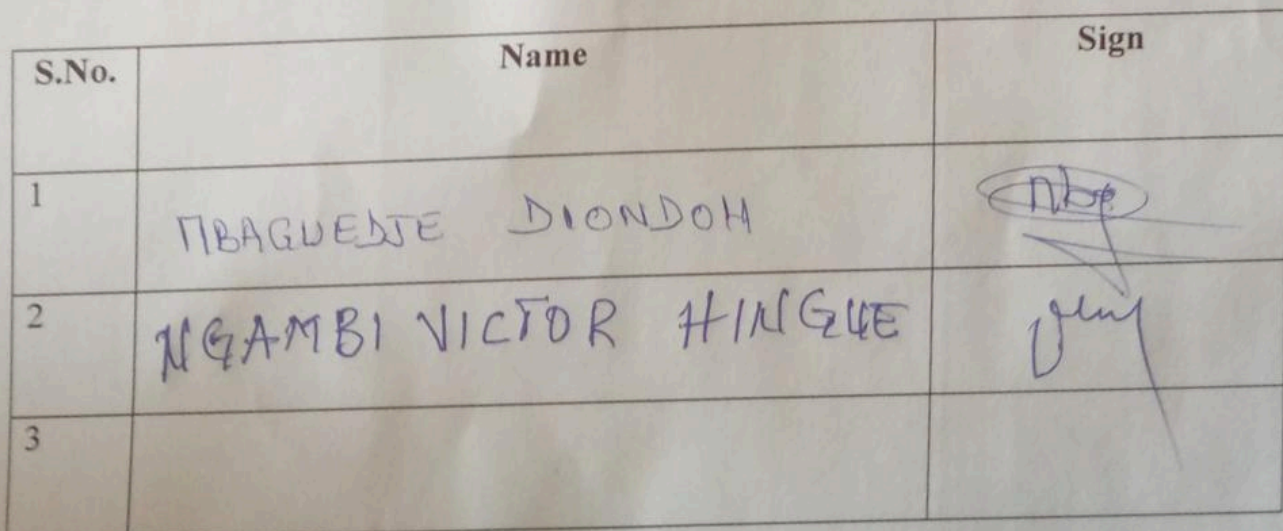 S.No. Name Sign
1 MBAGUEDJE DIONDOH
2 NGAMBI VICTOR HINGUE
3